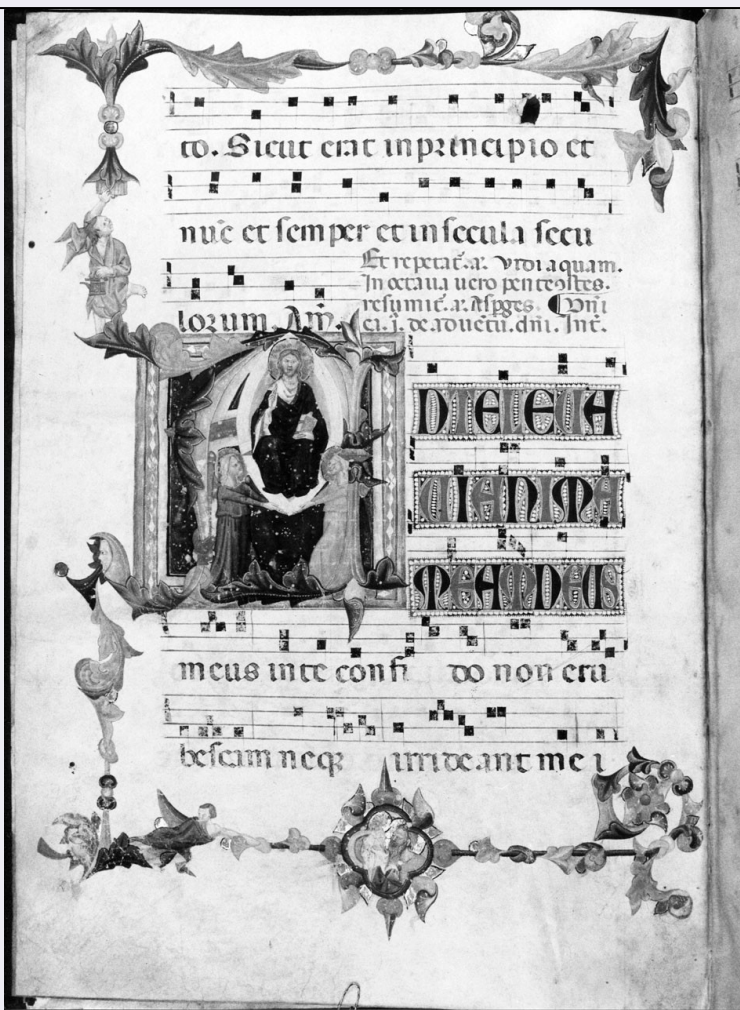 to. Sicut erat in principio et
nūc et semper et in secula secu
Et repetat̄. a. Vidi aquam.
In octaua uero pentecostes.
lorum. Am̄.
resumit̄. a. Asp̄ges. Dn̄i
ca. i. de aduētu. dn̄i. Int̄.
A
D TE LEUA
UI ANIMA
MEAM DEUS
meus in te confi do non eru
bescam neq̄ irrideant me i